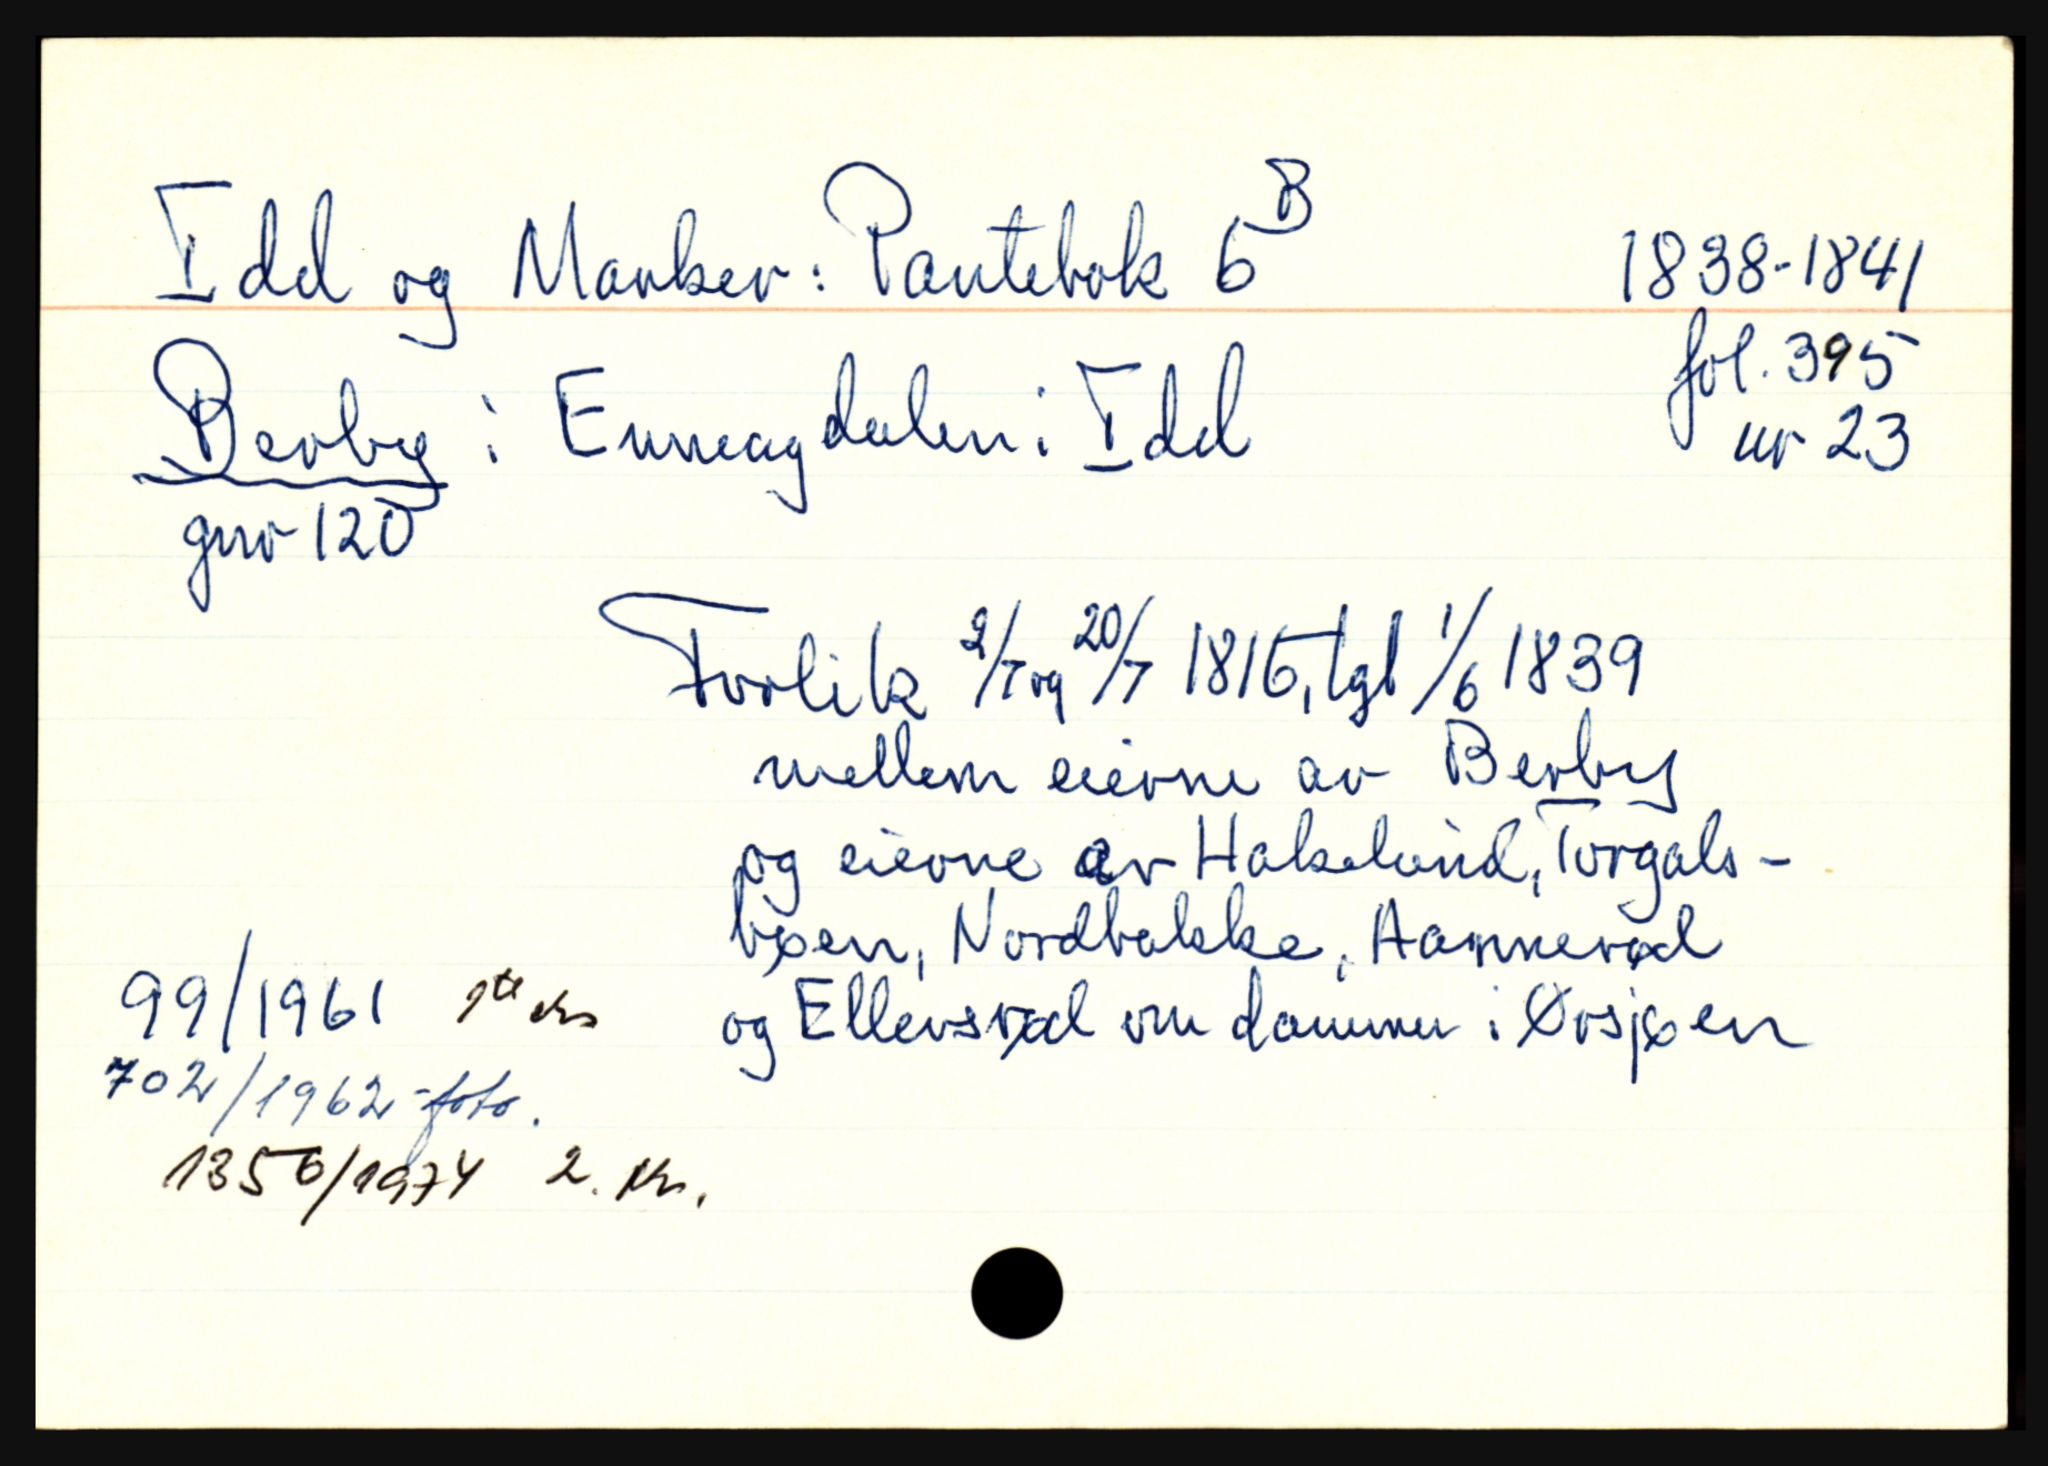 Idd og Marker: Pantebok 6B
1838-1841
fol. 395
nr 23
Berby i Enneagdalen i Idd
gnr 120
Forlik 2/7 og 20/7 1816, tgl 1/6 1839
mellem eierne av Berby
og eierne av Hakelund, Torgals-
bøen, Nordbakke, Aannerød
og Ellersrød om dammer i Ørsjøen
99/1961 1te
702/1962 - foto.
1356/1974 2.